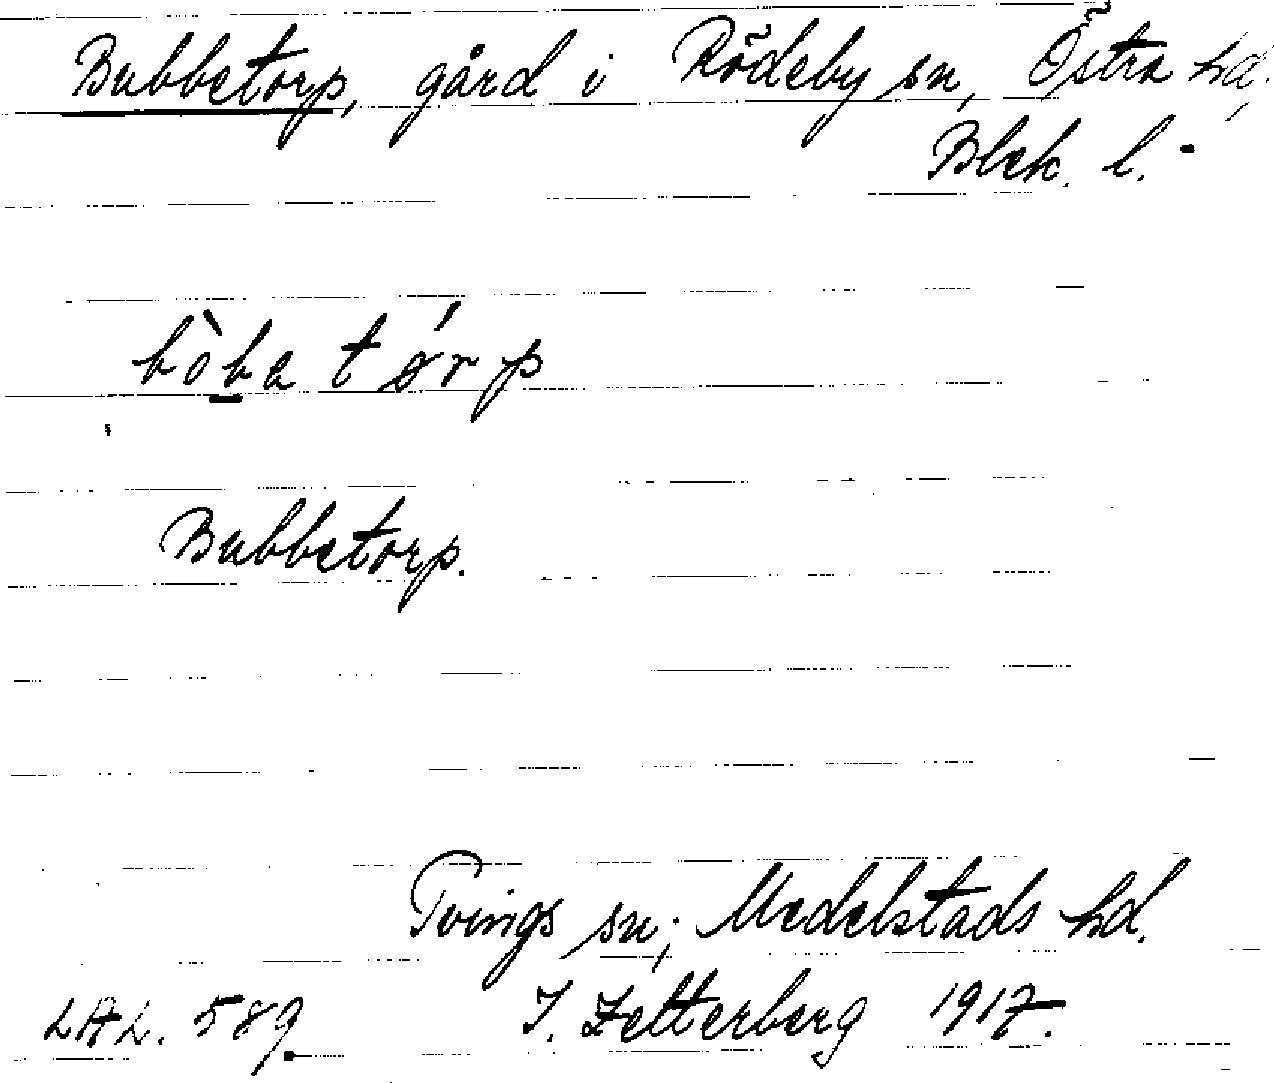 Bubbetorp, gård i Rödeby sn, Östra hd,
Blek. l.
bòb̲e tørṕ
Bubbetorp.
Tvings sn; Medelstads hd.
LAL. 589 I. Zetterberg 1917.